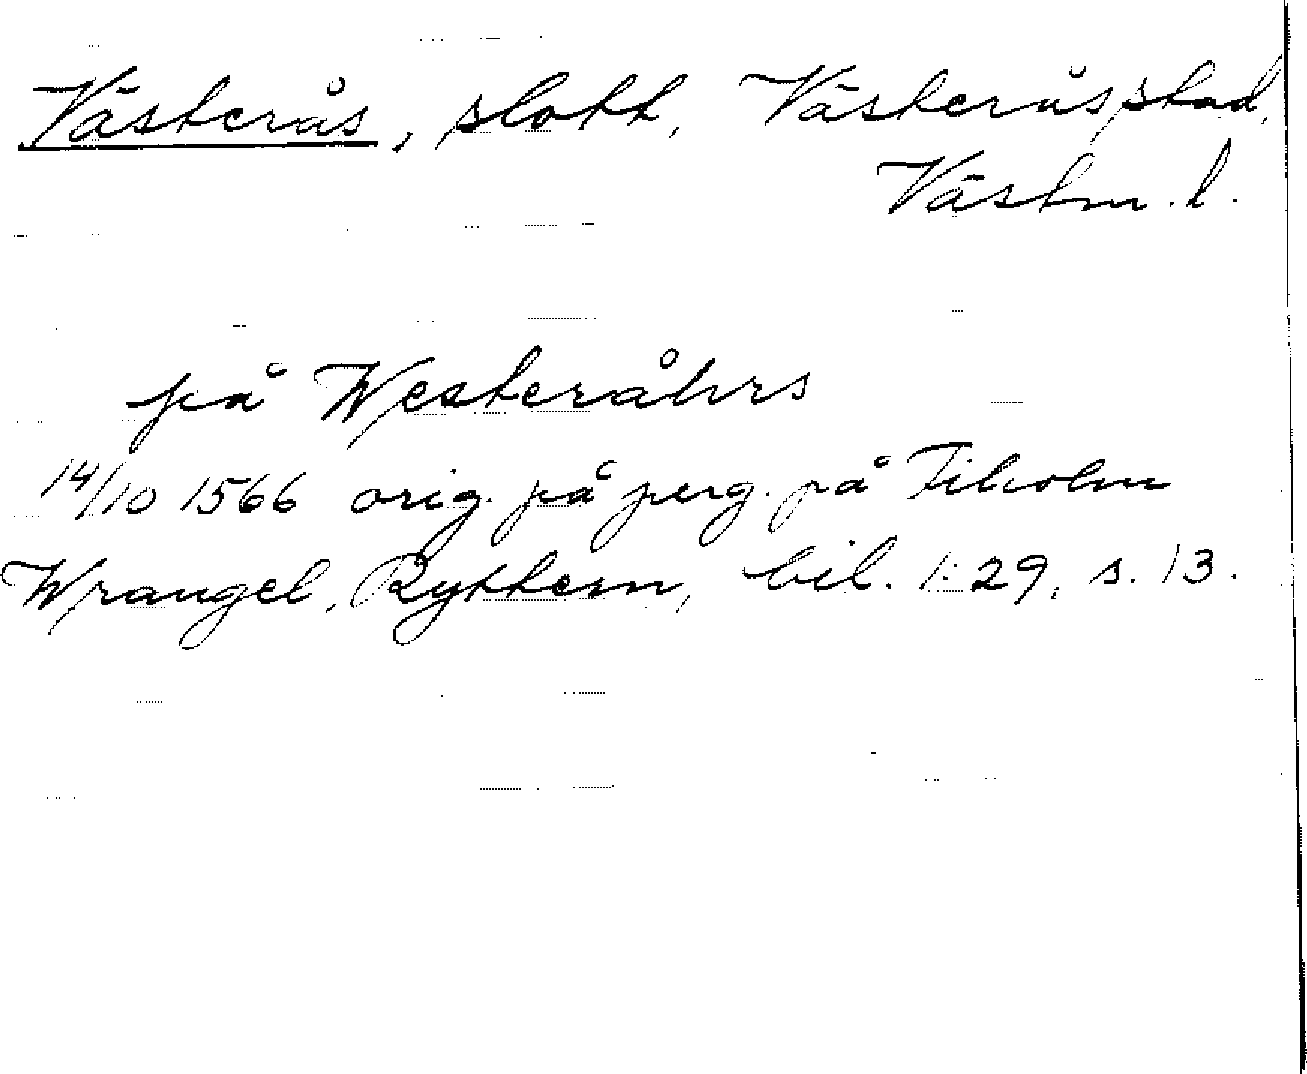 Västerås, slott, Västerås stad,
Västm. l.
på Westeråhrs
14/10 1566 orig. på perg. på Fiholm
Wrangel, Ryttern, bil. 1:29, s. 13.